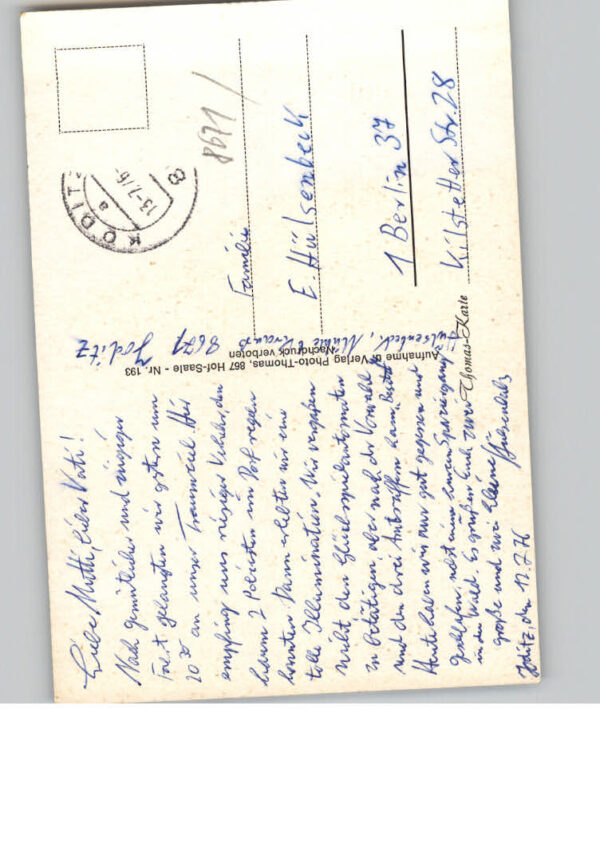 Liebe Mutti, lieber Vati!
Nach gemütlicher und zügiger
Fahrt gelangten wir gestern um
20 30 an unser Traumziel. Hier
empfing uns riesiger Verkehr, den
kaum 2 Polizisten im Dorf regeln
konnten. Dann erlebten wir eine
tolle Illumination. Wir vergaßen
nicht den Glücksspielautomaten
zu betätigen aber nach der Vorwahl
und den drei Ambratoffen kam
Heute haben wir nur gut gegessen und
geschlafen, nebst einem Spaziergang
in den Wald. Es grüßen Euch zwei
große und zwei kleine Hülsenbecks
Joditz, den 12.7.76
Aufnahme u. Verlag Photo-Thomas, 867 Hof-Saale - Nr. 193
Nachdruck verboten
Thomas-Karte
Hülsenbeck, 8671 Joditz
KÖDITZ
a
13-7.76
8671
Familie
E. Hülsenbeck
1 Berlin 37
Kilstetter Str. 28